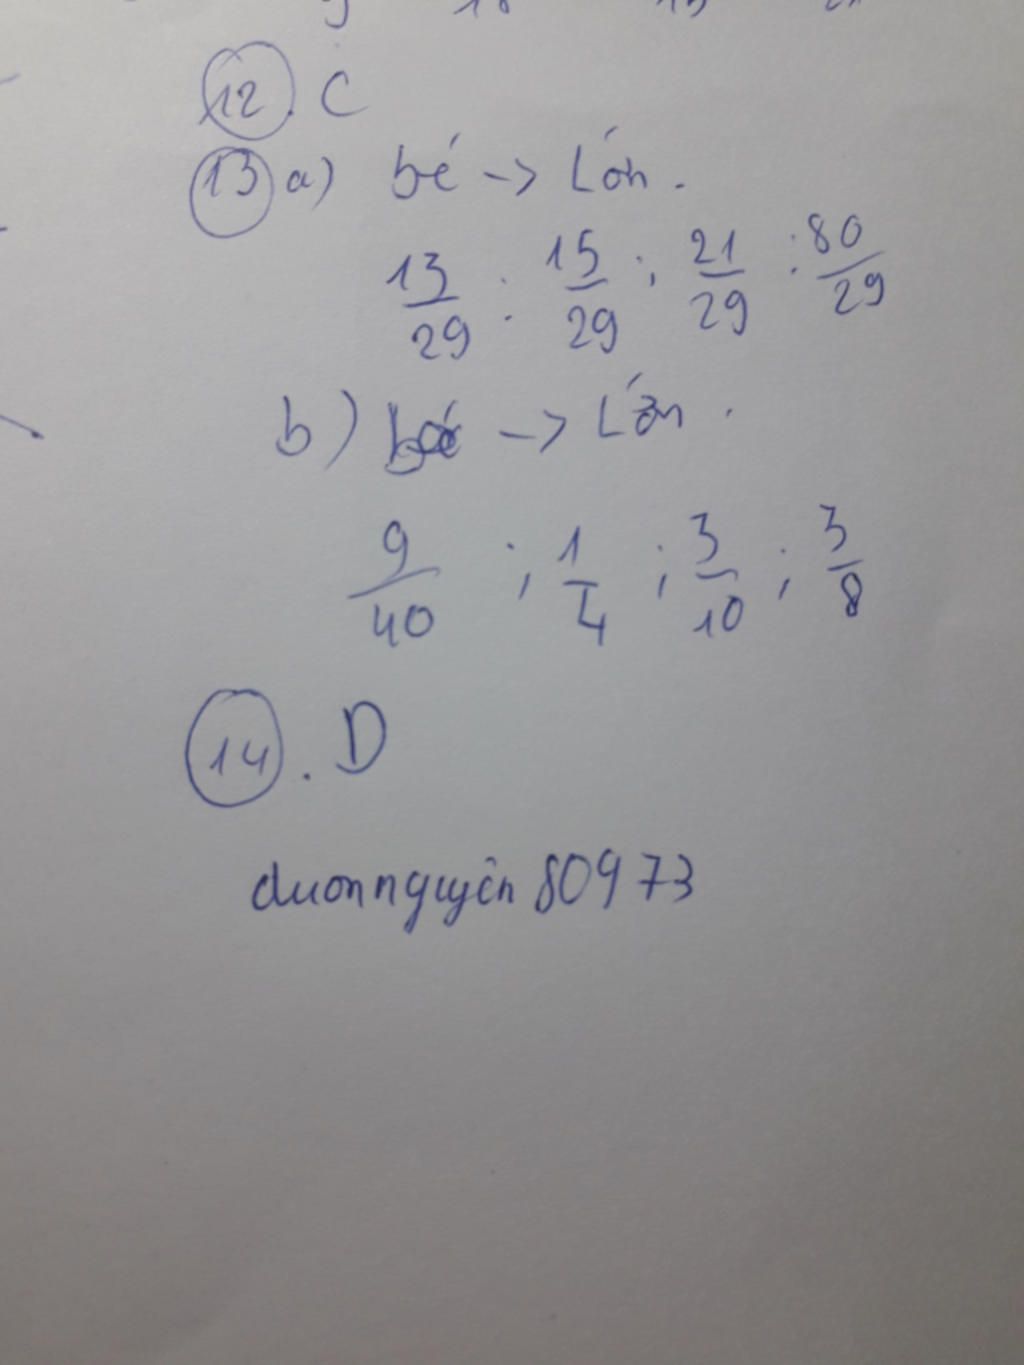 12. C
13 a) bé -> Lớn.
13/29 ; 15/29 ; 21/29 ; 80/29
b) bé -> Lớn.
9/40 ; 1/4 ; 3/10 ; 3/8
14. D
duonnguyên80973